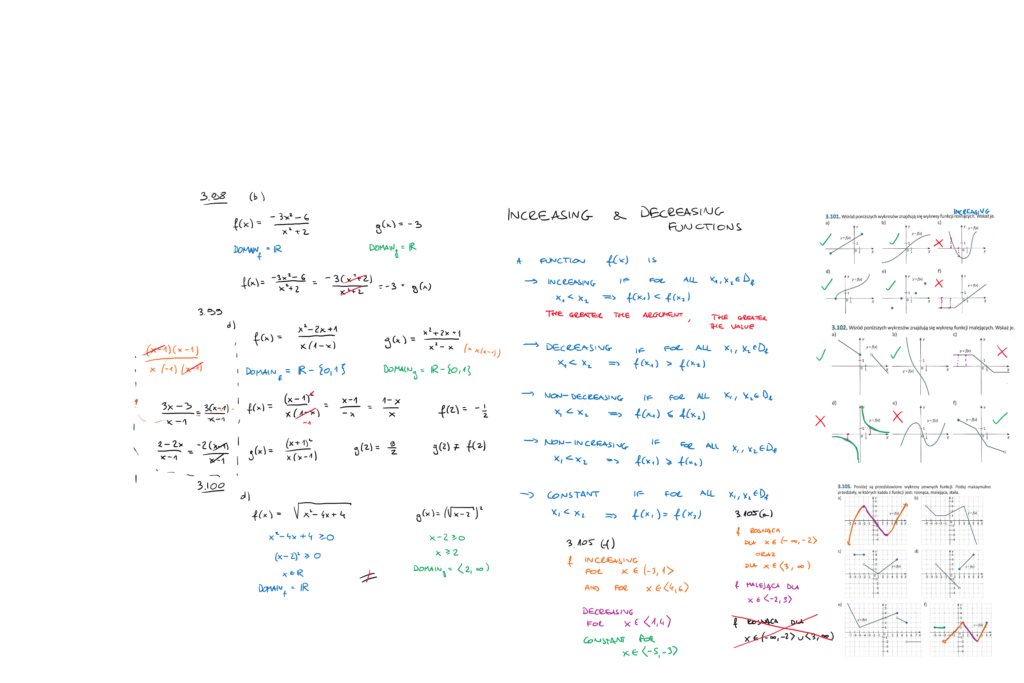 3.98 (b)
f(x) = -3x²-6 / x²+2
g(x) = -3
DOMAIN_f = ℝ
DOMAIN_g = ℝ
f(x) = -3x²-6 / x²+2 = -3(x²+2) / x²+2 = -3 = g(x)
3.99
d)
f(x) = x²-2x+1 / x(1-x)
g(x) = x²+2x+1 / x²-x (= x(x-1))
(x-1)(x-1) / x(-1)(x-1)
DOMAIN_f = ℝ - {0,1}
DOMAIN_g = ℝ - {0,1}
3x-3 / x-1 = 3(x-1) / x-1
f(x) = (x-1)² / x(1-x) = x-1 / -x = 1-x / x
-1
f(2) = -1/2
2-2x / x-1 = -2(x-1) / x-1
g(x) = (x+1)² / x(x-1)
g(2) = 9/2
g(2) ≠ f(2)
3.100
d)
f(x) = √x²-4x+4
g(x) = (√x-2)²
x²-4x+4 ≥ 0
x-2 ≥ 0
(x-2)² ≥ 0
x ≥ 2
x ∈ ℝ
DOMAIN_g = ⟨2, ∞)
DOMAIN_f = ℝ
≠
INCREASING & DECREASING
FUNCTIONS
A FUNCTION f(x) IS
→ INCREASING IF FOR ALL x₁, x₂ ∈ D_f
x₁ < x₂ ⟹ f(x₁) < f(x₂)
THE GREATER THE ARGUMENT, THE GREATER
THE VALUE
→ DECREASING IF FOR ALL x₁, x₂ ∈ D_f
x₁ < x₂ ⟹ f(x₁) > f(x₂)
→ NON-DECREASING IF FOR ALL x₁, x₂ ∈ D_f
x₁ < x₂ ⟹ f(x₁) ≤ f(x₂)
→ NON-INCREASING IF FOR ALL x₁, x₂ ∈ D_f
x₁ < x₂ ⟹ f(x₁) ≥ f(x₂)
→ CONSTANT IF FOR ALL x₁, x₂ ∈ D_f
x₁ < x₂ ⟹ f(x₁) = f(x₂)
3.105 (f)
f INCREASING
FOR x ∈ (-3, 1⟩
AND FOR x ∈ ⟨4, 6⟩
DECREASING
FOR x ∈ ⟨1, 4⟩
CONSTANT FOR
x ∈ ⟨-5, -3⟩
3.105 (a)
f ROSNĄCA
DLA x ∈ (-∞, -2⟩
ORAZ
DLA x ∈ ⟨3, ∞)
f MALEJĄCA DLA
x ∈ ⟨-2, 3⟩
f ROSNĄCA DLA
x ∈ (-∞, -2⟩ ∪ ⟨3, ∞)
INCREASING
3.101. Wśród poniższych wykresów znajdują się wykresy funkcji malejących. Wskaż je.
a) b) c)
d) e) f)
3.102. Wśród poniższych wykresów znajdują się wykresy funkcji malejących. Wskaż je.
a) b) c)
d) e) f)
3.105. Poniżej są przedstawione wykresy pewnych funkcji. Podaj maksymalne
przedziały, w których każda z funkcji jest: rosnąca, malejąca, stała.
a) b)
c) d)
e) f)